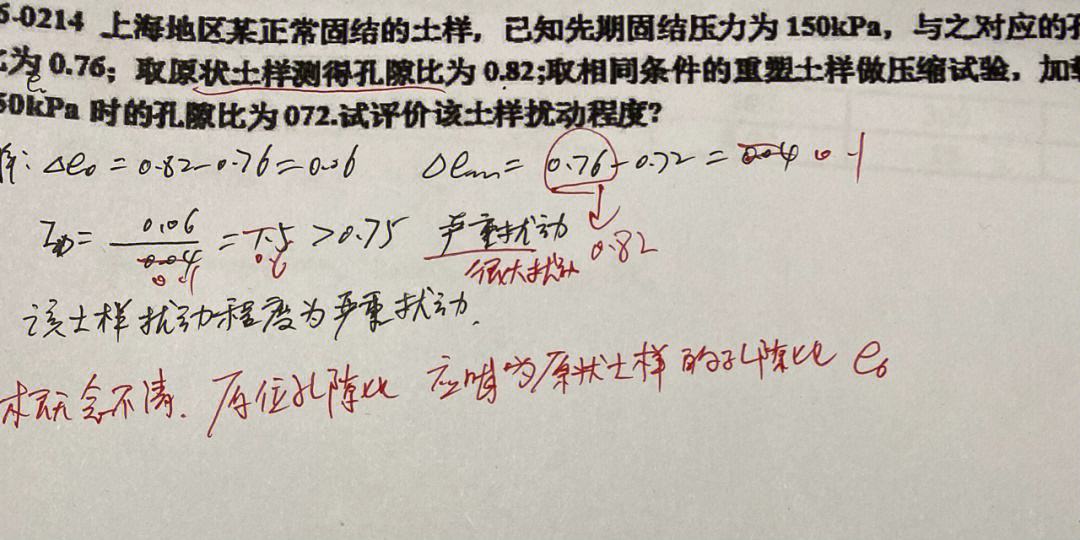 5-0214 上海地区某正常固结的土样，已知先期固结压力为150kPa，与之对应的孔
比为0.76；取原状土样测得孔隙比为0.82;取相同条件的重塑土样做压缩试验，加载
50kPa 时的孔隙比为072.试评价该土样扰动程度?
解: Δe₀ = 0.82-0.76=0.06 Δem = 0.76-0.72 = 0.04 0.1
= 0.06 / 0.04 = 1.5 >0.75 严重扰动 0.82
0.1 0.6 很大扰动
该土样扰动程度为严重扰动.
概念不清. 原位孔隙比 应为原状土样的孔隙比 e₀